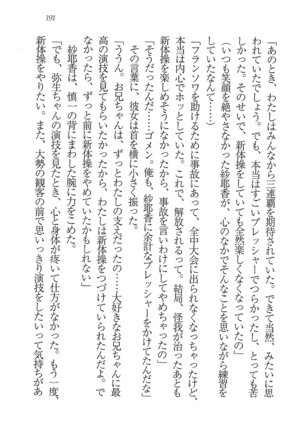 191
「あのとき、わたしはみんなから三連覇を期待されていた。できて当然、みたいに思
われていたでしょう。でも、本当はすごいプレッシャーでつらかったし、とっても苦
しくなっていた。そのせいで、新体操をしていても全然楽しくなくなっていたの」
（いつも笑顔を絶やさなかった紗耶香が、心のなかでそんなことを思いながら練習を
していたなんて……）
「フランソワを助けるために事故にあって、全中大会に出られなくなっちゃったけど、
本当は内心でホッとしていた。これで、解放されるって。結局、怪我が治ったあとも
新体操を楽しめそうになかったから、事故を言いわけにしてやめちゃったの」
「そうだったんだ……ゴメン。俺も、紗耶香に余計なプレッシャーをかけてたんだな」
その言葉に、彼女は首を横に小さく振った。
「ううん。お兄ちゃんは、ずっとわたしの支えだったの……大好きなお兄ちゃんに最
高の演技を見てもらいたかったから、わたしは新体操をつづけていられたんだよ。で
なかったら、ずっと前に新体操をやめていたかもしれない」
紗耶香は、慎一の背にまわした腕に力をこめた。
「でも、弥生ちゃんの演技を見たとき、心と身体が疼いて仕方がなかった。もう一度、
新体操をやりたい、また、大勢の観客の前で思いっきり演技をしたいって気持ちがあ